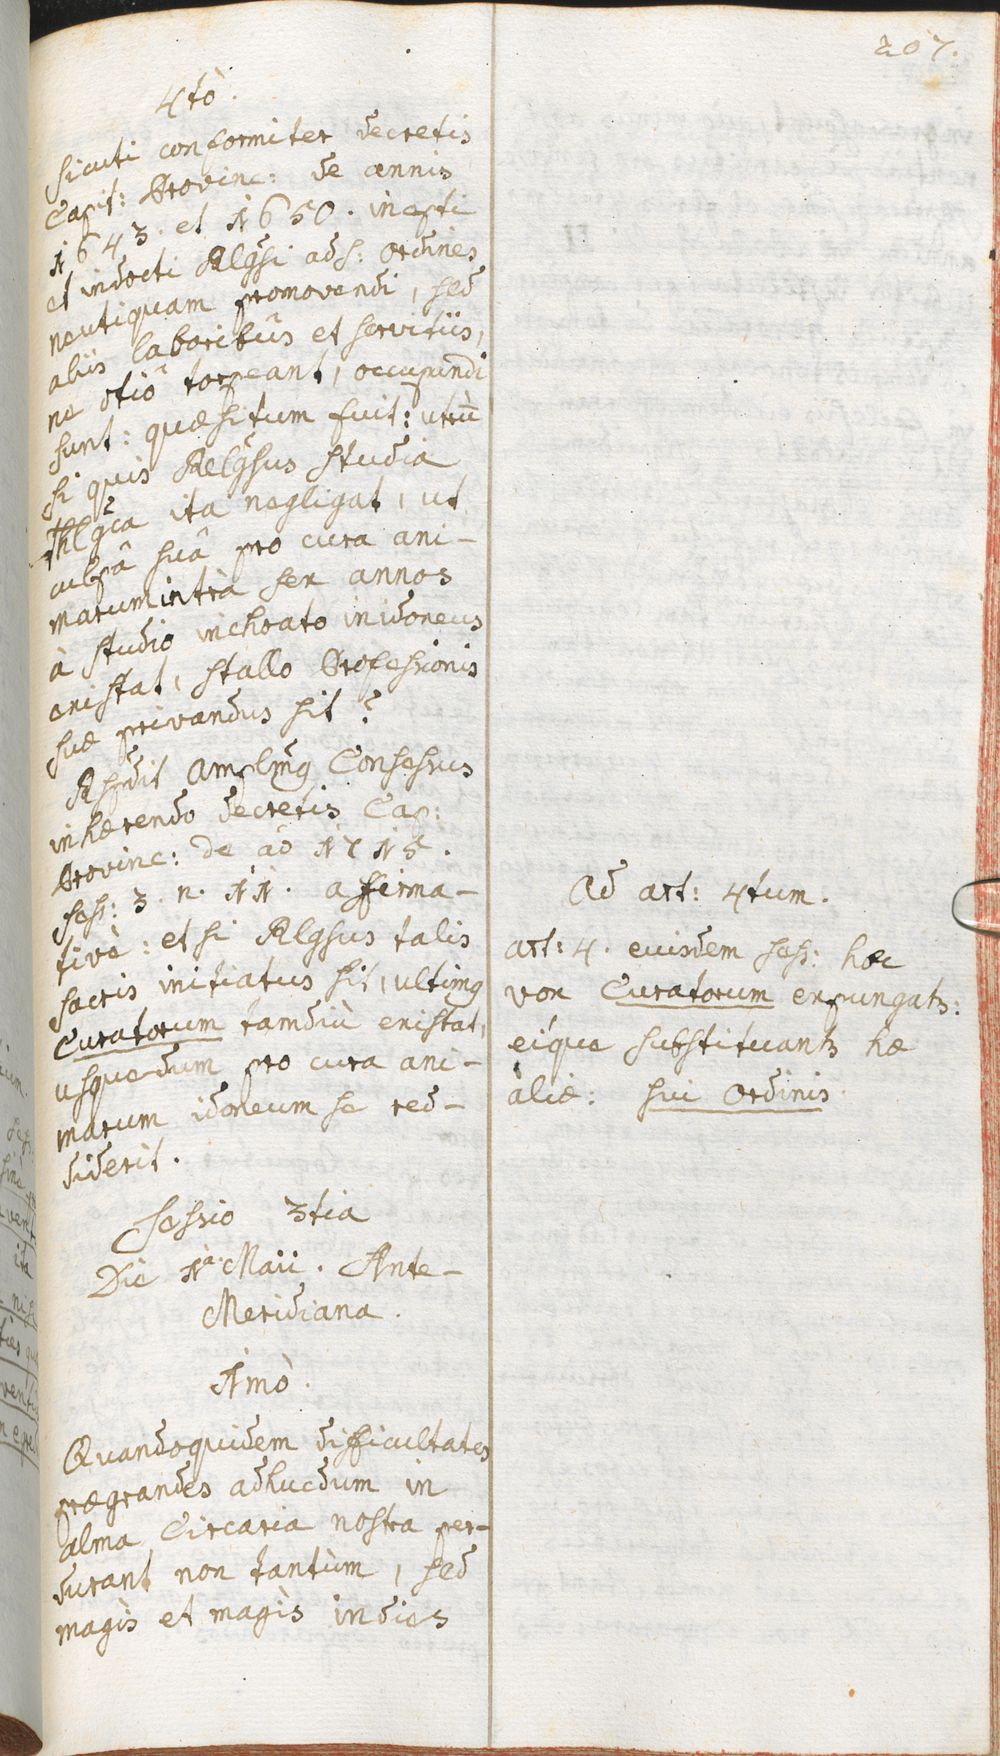 207.
4tò.
Sicuti conformiter decretis
Capit: Provinc: de annis
1643. et 1650. inepti
et indocti Rlgsi ad S: Ordines
neutiquam promovendi, sed
aliis laboribus et servitiis,
ne otiô torpeant, occupandi
sunt: quæsitum fuit: utrū
si quis Relgsus studia
Thlgca ita negligat, ut
culpâ suâ pro cura ani-
marum intrà sex annos
à studio inchoato inidoneus
existat, stallo Professionis
suæ privandus sit?
Rspdit Amplmg Consessus
inhærendo decretis Cap:
Provinc: de aō 1715.
Sess: 3. n. 11. affirma-
tivè: et si Rlgsus talis
sacris initiatus sit, ultimg
Curatorum tamdiù existat,
usquedum pro cura ani-
marum idoneum se red-
diderit.
Sessio 3tia
Die 1a Maii. Ante-
Meridiana.
1mò.
Quandoquidem difficultates
prægrandes adhucdum in
alma Circaria nostra per-
durant non tantùm, sed
magìs et magìs indies
Ad art: 4tum.
art: 4. eiusdem sess: hæc
vox Curatorum expungatr:
eíque substituantr hæ
àliæ: sui Ordinis.